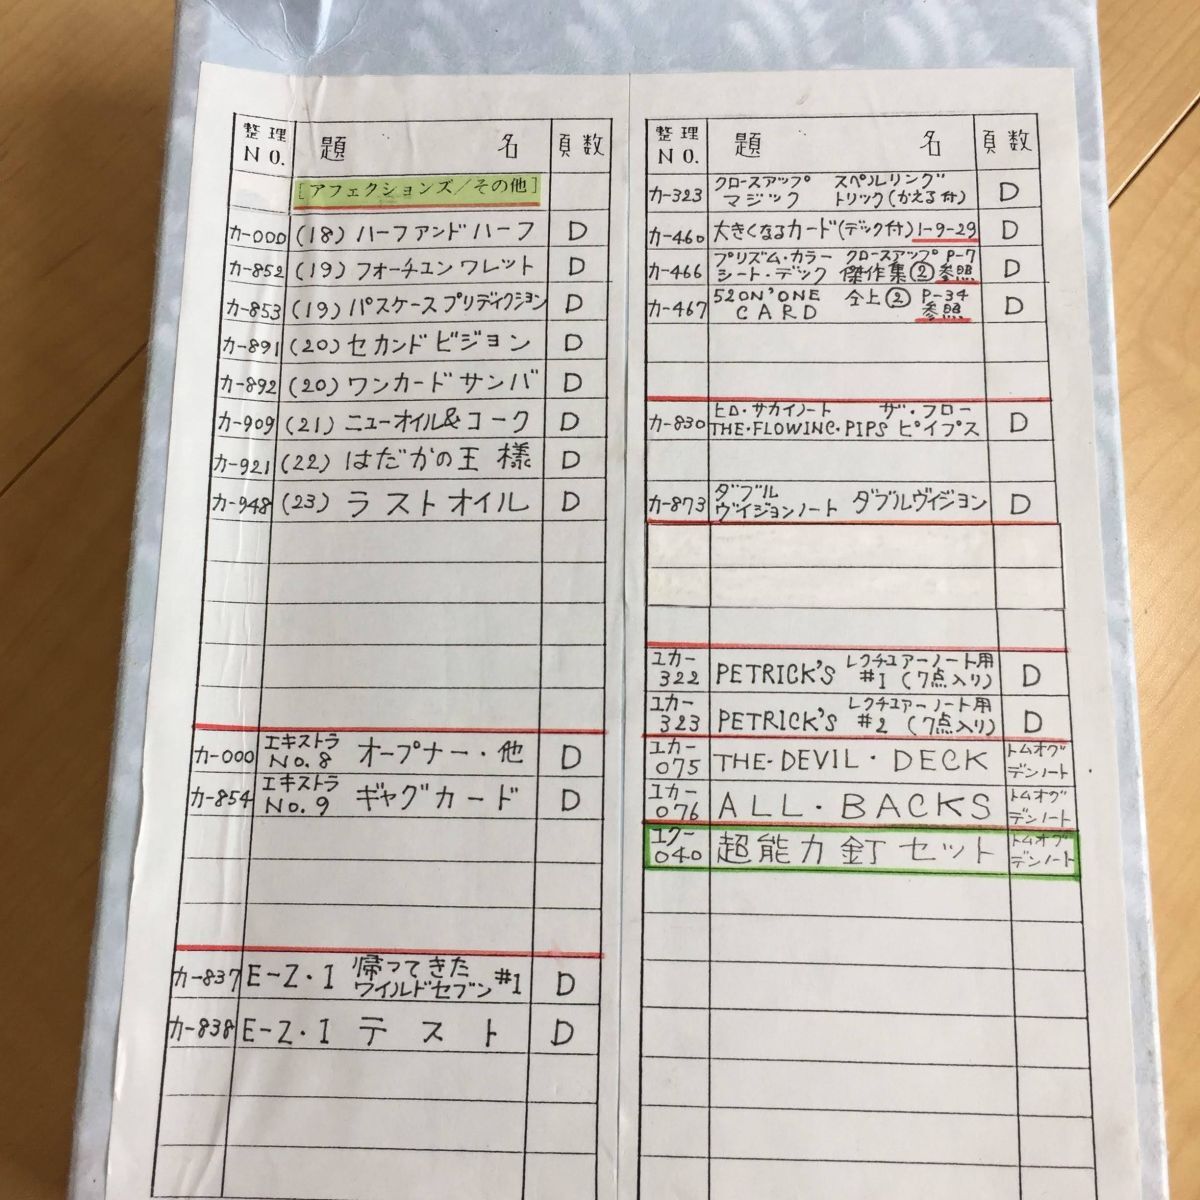 整理NO. 題名 頁数
[アフェクションズ/その他]
カ-000 (18) ハーフアンドハーフ D
カ-852 (19) フォーチュン ワレット D
カ-853 (19) パスケース プリディクション D
カ-891 (20) セカンド ビジョン D
カ-892 (20) ワンカード サンバ D
カ-909 (21) ニューオイル&コーク D
カ-921 (22) はだかの王様 D
カ-948 (23) ラストオイル D
カ-000 エキストラNo.8 オープナー・他 D
カ-854 エキストラNo.9 ギャグカード D
カ-837 E-Z・1 帰ってきたワイルドセブン#1 D
カ-838 E-Z・1 テスト D
整理NO. 題名 頁数
カ-323 クロースアップマジック スペルリングトリック(かえる付) D
カ-460 大きくなるカード(デック付)1-9-29 D
カ-466 プリズム・カラーシート・デック クロースアップP-7傑作集②参照 D
カ-467 52ON'ONE CARD 仝上② P-34参照 D
カ-830 ヒロ・サカイノート ザ・フロー
THE・FLOWING・PIPS ピイプス D
カ-873 ダブルヴイジョンノート ダブルヴィジョン D
ユカー322 PETRICK'S レクチュアーノート用#1(7点入り) D
ユカー323 PETRICK'S レクチュアーノート用#2(7点入り) D
ユカー075 THE・DEVIL・DECK トムオグデンノート
ユカー076 ALL・BACKS トムオグデンノート
ユクー040 超能力釘セット トムオグデンノート